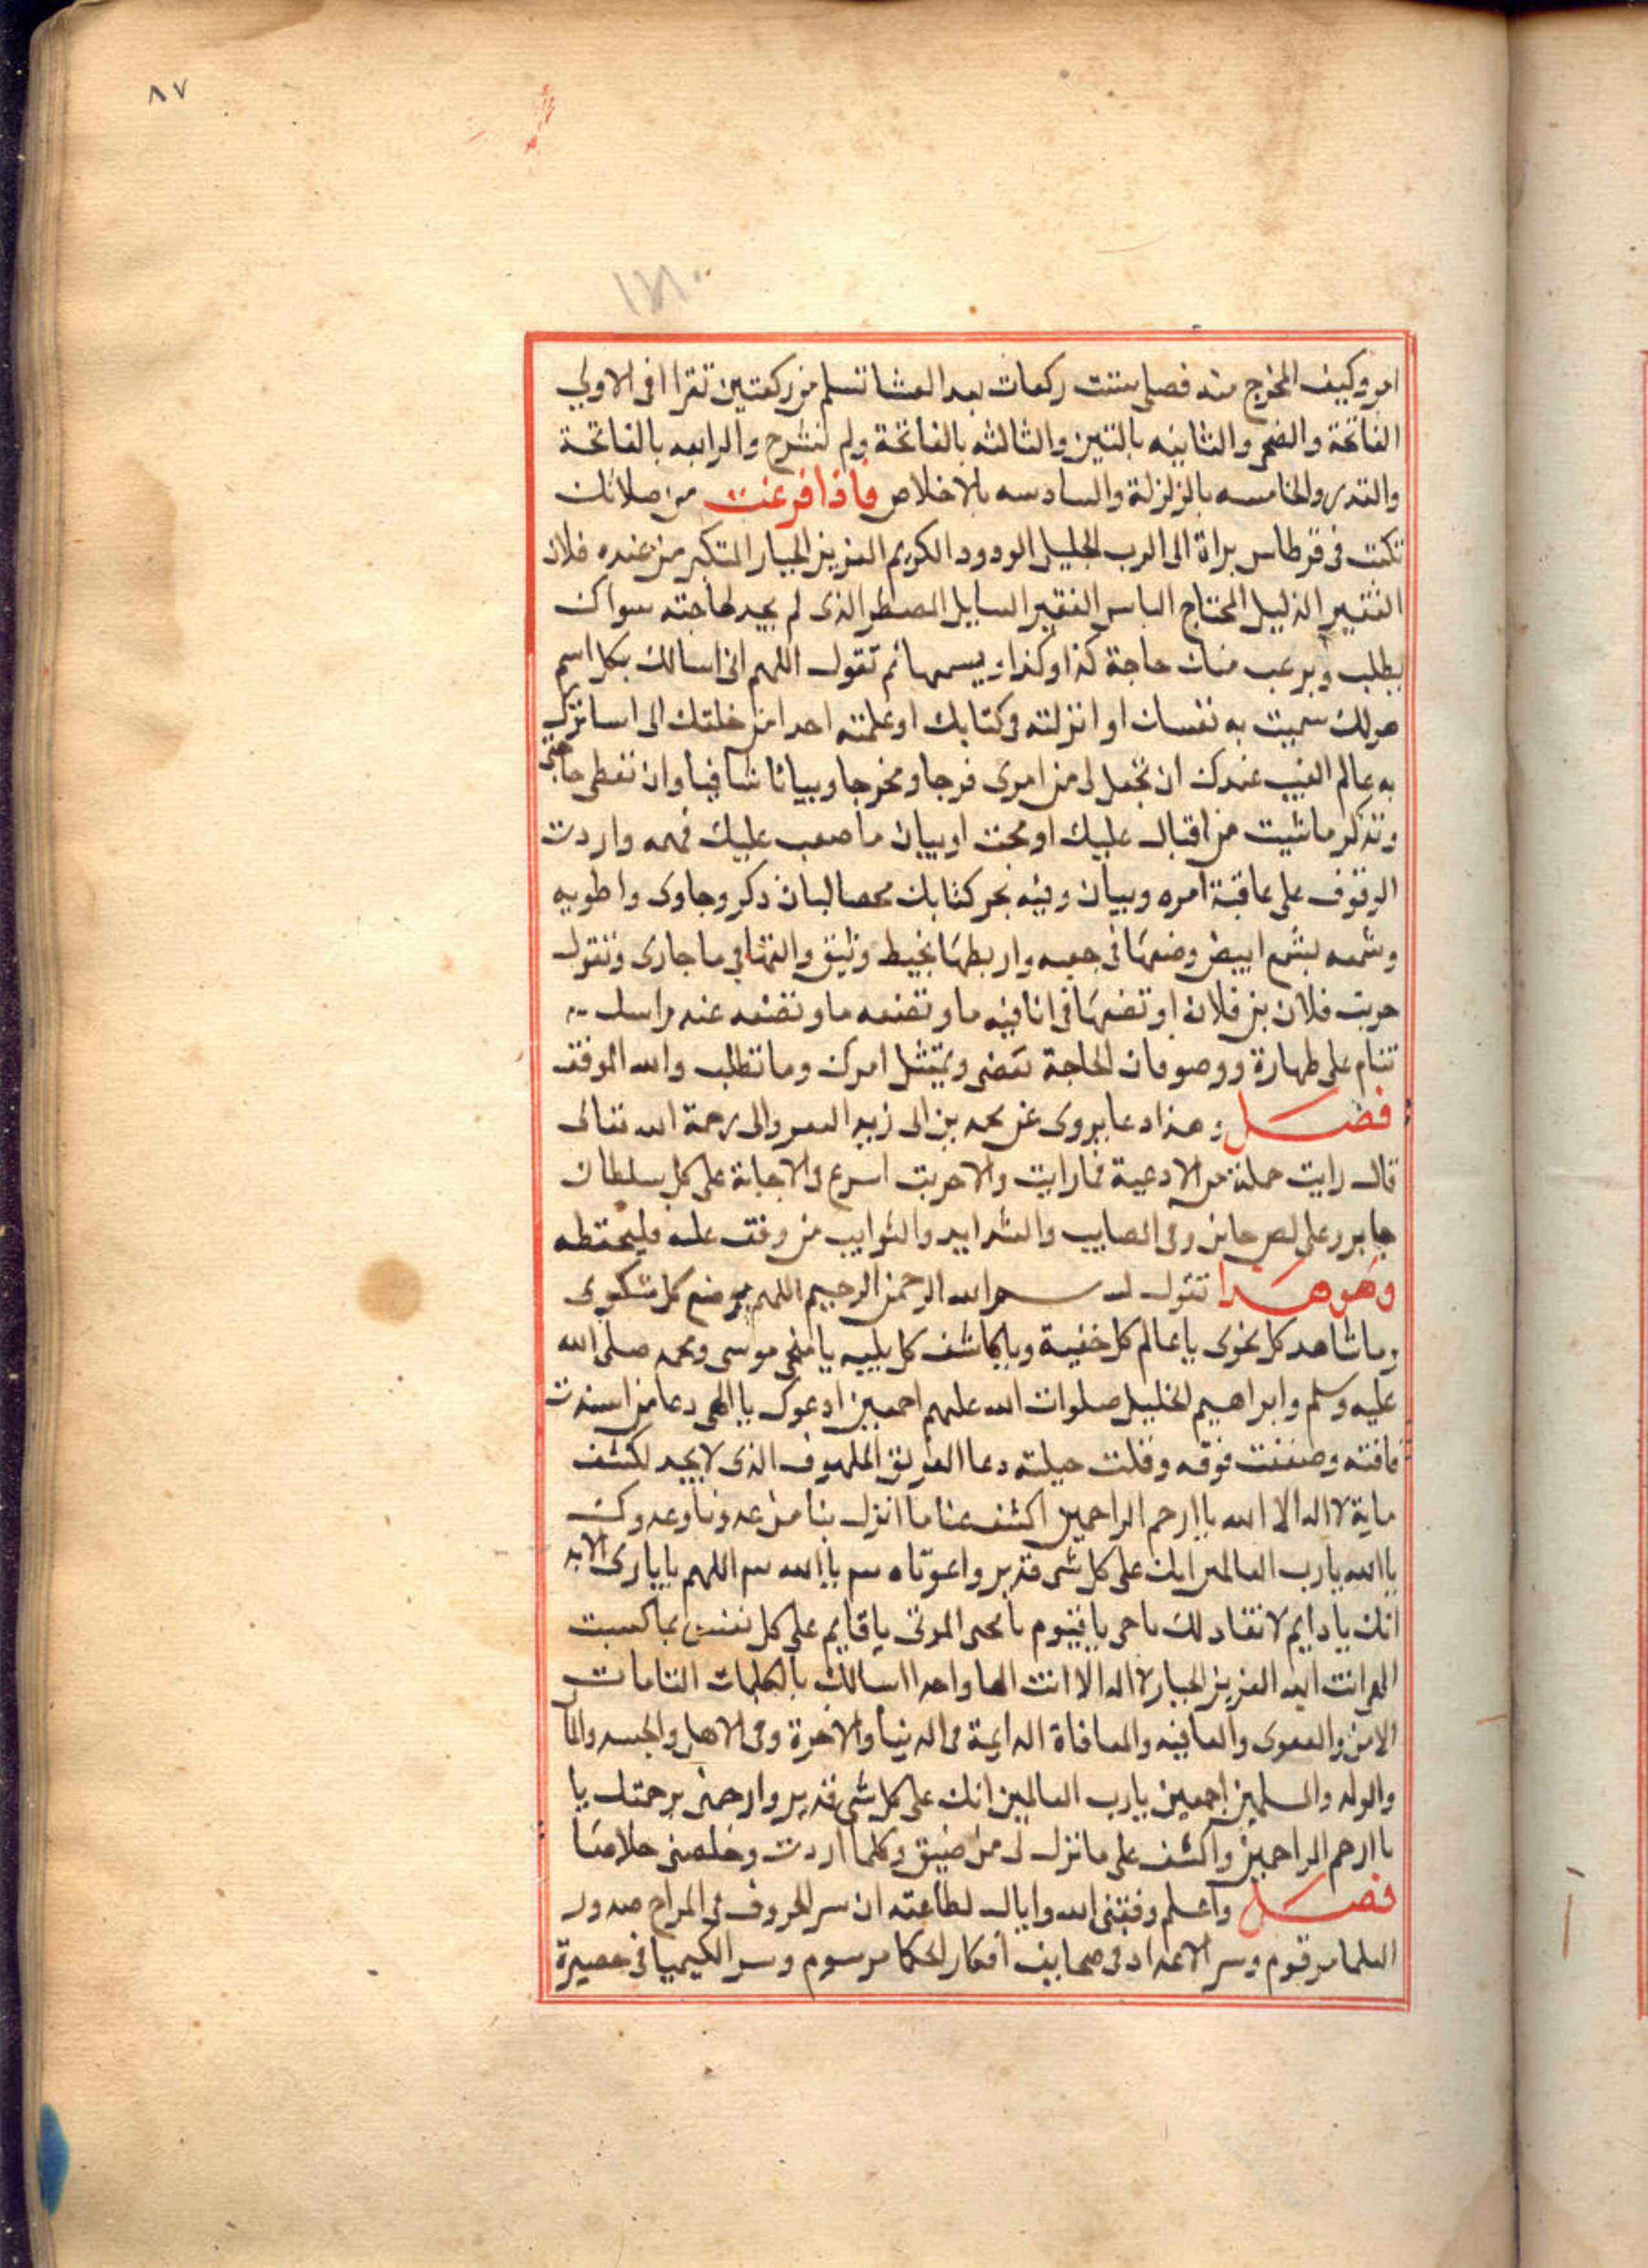 ٨٧
امر وكيف المخرج منه فصلى ستت ركعات بعد العشا تسلم من ركعتين تقرا فى الاولي
الفاتحة والضحى والثانيه بالتين والثالثه بالفاتحة ولم نشرح والرابعه بالفاتحة
والقدر والخامسه بالزلزلة والسادسه بالاخلاص فاذا فرغت من صلاتك
تكتب فى قرطاس براة الى الرب الجليل الودود الكريم العزيز الجبار المتكبر من عنده فلان
الفقير الذليل المحتاج الباس الفقير السايل المضطر الذى لم يجد لحاجته سواك
يطلب ويرغب منك حاجة كذا وكذا ويسميها ثم تقول اللهم انى اسالك بكل اسم
هو لك سميت به نفسك او انزلته فى كتابك او علمته احدا من خلقك الى
به عالم الغيب عندك ان تجعل لى من امرى فرجا ومخرجا وبيانا شافيا وان تقظى حاجتى
وتذكر ماشيت من اقبال عليك او محبت او بيان ما صعب عليك فهمه واردت
الوقوف على عاقبة امره وبيان وفيه بخر كتابك بحصا لبان ذكر وجاوى واطويه
وشمعه بشمع ابيض وضعها فى وار بطها بخيط وثيق والقها فى ما جارى وتقول
حربت فلان بن فلان او تضعها فى انا فيه ما وتضعه ما وتضعه عند راسك
تنام على طهارة ووضو فان الحاجة تقضى ويمتثل امرك وما تطلب والله الموفق
فصل وهذا دعا يروى عن محمد بن ابى زيد رحمة الله تعالى
قال رايت جملة من الادعية فما رايت ولا جربت اسرع فى الاجابة على كل سلطان
جابر وعلى لص خاين وفى المصايب والشدايد والنوايب من وقف عليه فليحتفظه
وهو هذا تقول بسم الله الرحمن الرحيم اللهم موضع كل شكوى
وياشاهد كل نجوى ياعالم كل خفية وياكاشف كل بليه يامنجى موسى ومحمد صلى الله
عليه وسلم وابراهيم الخليل صلوات الله عليهم اجمعين ادعوك ياالهى دعا من اشتدت
فاقته وضعفت قوته وقلت حيلته دعا الغريق الملهوف الذى لا يجد لكشف
مابه الا الله ياارحم الراحمين اكشف عنا ما انزل بنا من عدونا وعدوك
ياالله يارب العالمين انك على كل شى قدير واغوثاه ياالله اللهم ياباري
انك يا دايم لا نفاد لك ياحى ياقيوم يامحى الموتى ياقايم على كل نفس بما كسبت
انت الله العزيز الجبار لا اله الا انت الها واحدا اسالك بالكلمات التامات
الامن والعفو والعافيه والمعافاة الدايمة فى الدنيا والاخرة وفى الاهل والجسد والمال
والولد والمسلمين اجمعين يارب العالمين انك على كل شى قدير وارحمنى برحمتك يا
ياارحم الراحمين واكشف على مانزل لى من ضيق وكلما اردت وخلصنى خلاصا
فصل واعلم وفقنى الله واياك لطاعته ان سر الحروف فى صدور
العلما مرقوم وسر الاعداد فى صحايف افكار الحكما مرسوم وسر الكيميا فى